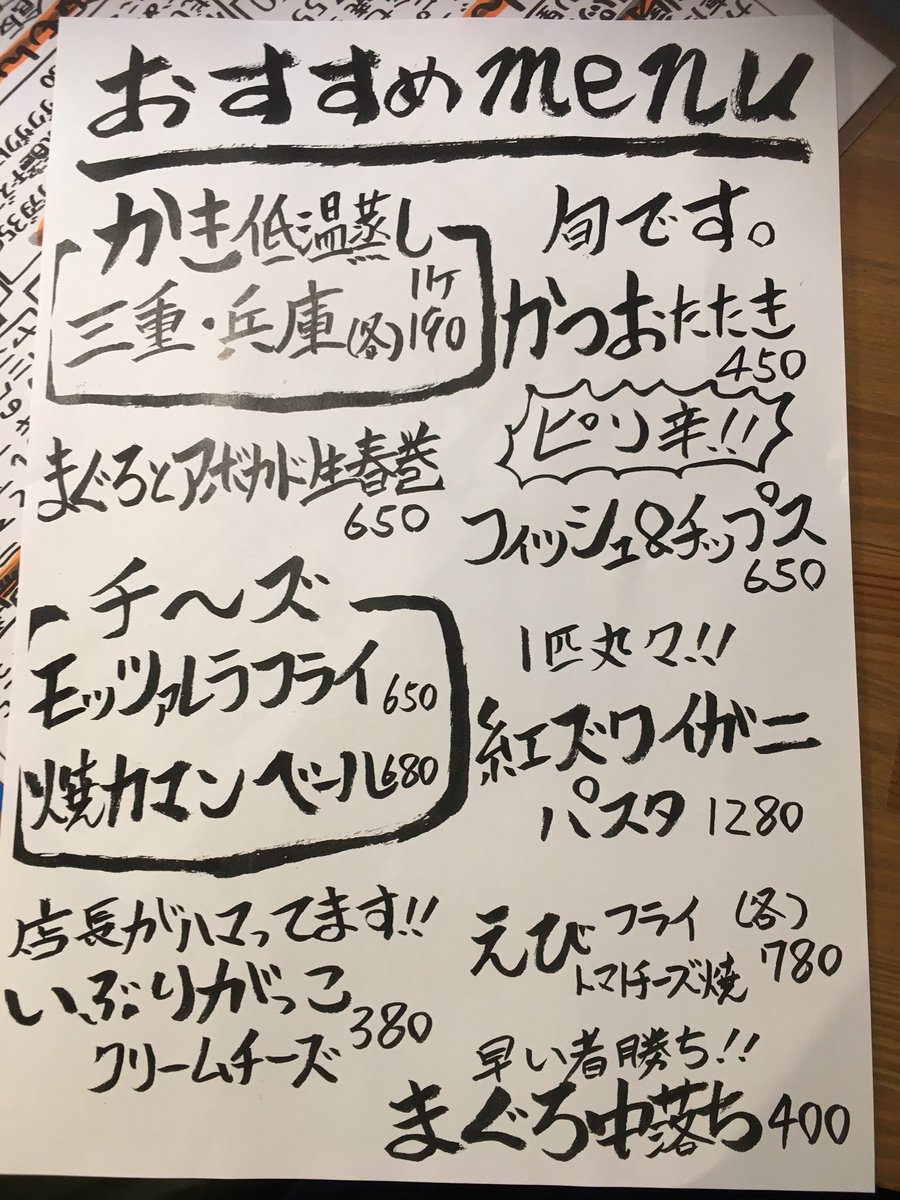 おすすめmenu
かき低温蒸し
三重・兵庫(各)1ケ190
まぐろとアボカド生春巻
650
チ〜ズ
モッツァレラフライ650
焼カマンベール680
店長がハマってます!!
いぶりがっこ
クリームチーズ380
旬です。
かつおたたき
450
ピリ辛!!
フィッシュ&チップス
650
1匹丸々!!
紅ズワイガニ
パスタ1280
えびフライ(各)
トマトチーズ焼780
早い者勝ち!!
まぐろ中落ち400